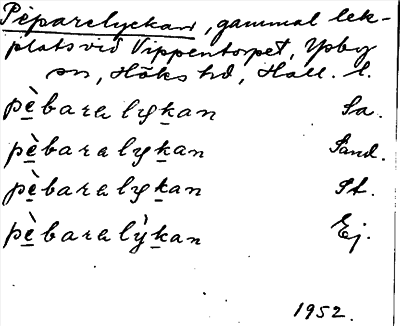 Pèparelyckan, gammal lek-
plats vid Vippentorpet, Ysby
sn, Höks hd, Hall. l.
pèbaralykan Sa.
pèbaralykan Sand.
pèbaralykan St.
pèbaralỳkan Ej.
1952.